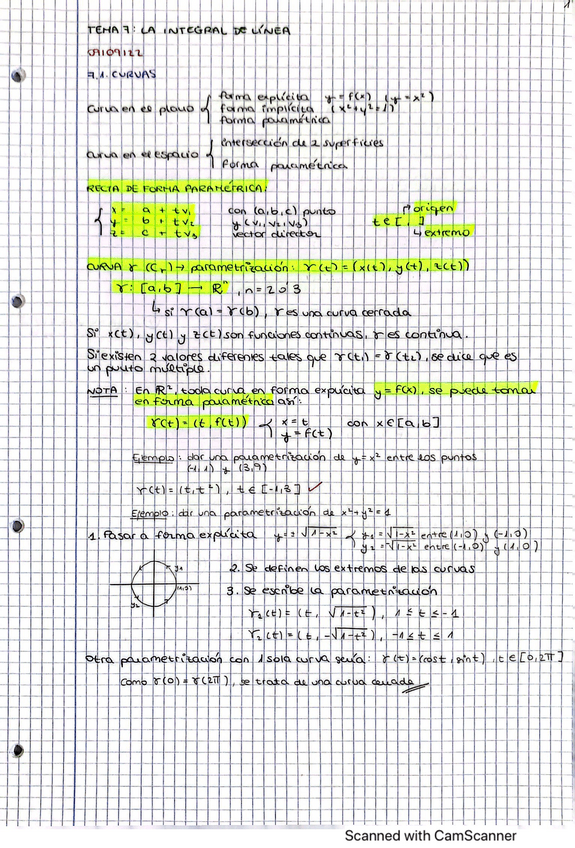 1
TEMA 7: LA INTEGRAL DE LÍNEA
09/09/22
7.1. CURVAS
Curva en el plano { forma explícita y = f(x) (y = x²)
forma implícita (x²+y²=1)
forma paramétrica
Curva en el espacio { intersección de 2 superficies
forma paramétrica
RECTA DE FORMA PARAMÉTRICA:
{ x = a + tv₁ con (a,b,c) punto ↱ origen
y = b + tv₂ y (v₁, v₂, v₃) t ∈ [ , ]
z = c + tv₃ vector director ↳ extremo
CURVA γ (Cᵣ) → parametrización: γ(t) = (x(t), y(t), z(t))
γ: [a,b] → ℝⁿ, n = 2 ó 3
↳ si γ(a) = γ(b), γ es una curva cerrada
Si x(t), y(t) y z(t) son funciones continuas, γ es continua.
Si existen 2 valores diferentes tales que γ(t₁) = γ(t₂), se dice que es
un punto múltiple.
NOTA: En ℝ², toda curva en forma explícita y = f(x), se puede tomar
en forma paramétrica así:
γ(t) = (t, f(t)) { x = t con x ∈ [a,b]
y = f(t)
Ejemplo: dar una parametrización de y = x² entre los puntos
(-1,1) y (3,9)
γ(t) = (t, t²), t ∈ [-1,3] ✓
Ejemplo: dar una parametrización de x²+y²=1
1. Pasar a forma explícita y = ± √1-x² { y₁ = √1-x² entre (1,0) y (-1,0)
y₂ = -√1-x² entre (-1,0) y (1,0)
y₁
(1,0)
y₂
2. Se definen los extremos de las curvas
3. Se escribe la parametrización
γ₁(t) = (t, √1-t²), 1 ≤ t ≤ -1
γ₂(t) = (t, -√1-t²), -1 ≤ t ≤ 1
Otra parametrización con 1 sola curva sería: γ(t) = (cost, sint), t ∈ [0, 2π]
Como γ(0) = γ(2π), se trata de una curva cerrada
Scanned with CamScanner